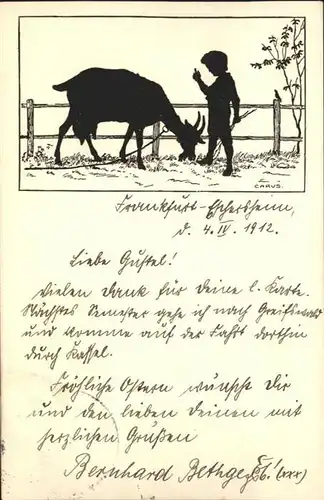 CARUS.
Frankfurt-Eschersheim,
d. 4. IV. 1912.
Liebe Gustel!
Vielen Dank für deine l. Karte.
Nächstes Semester gehe ich nach Greifswald
und komme auf der Fahrt dorthin
durch Kassel.
Fröhliche Ostern wünscht Dir
und den lieben Deinen mit
herzlichen Grüßen
Bernhard Bethge (xxx)